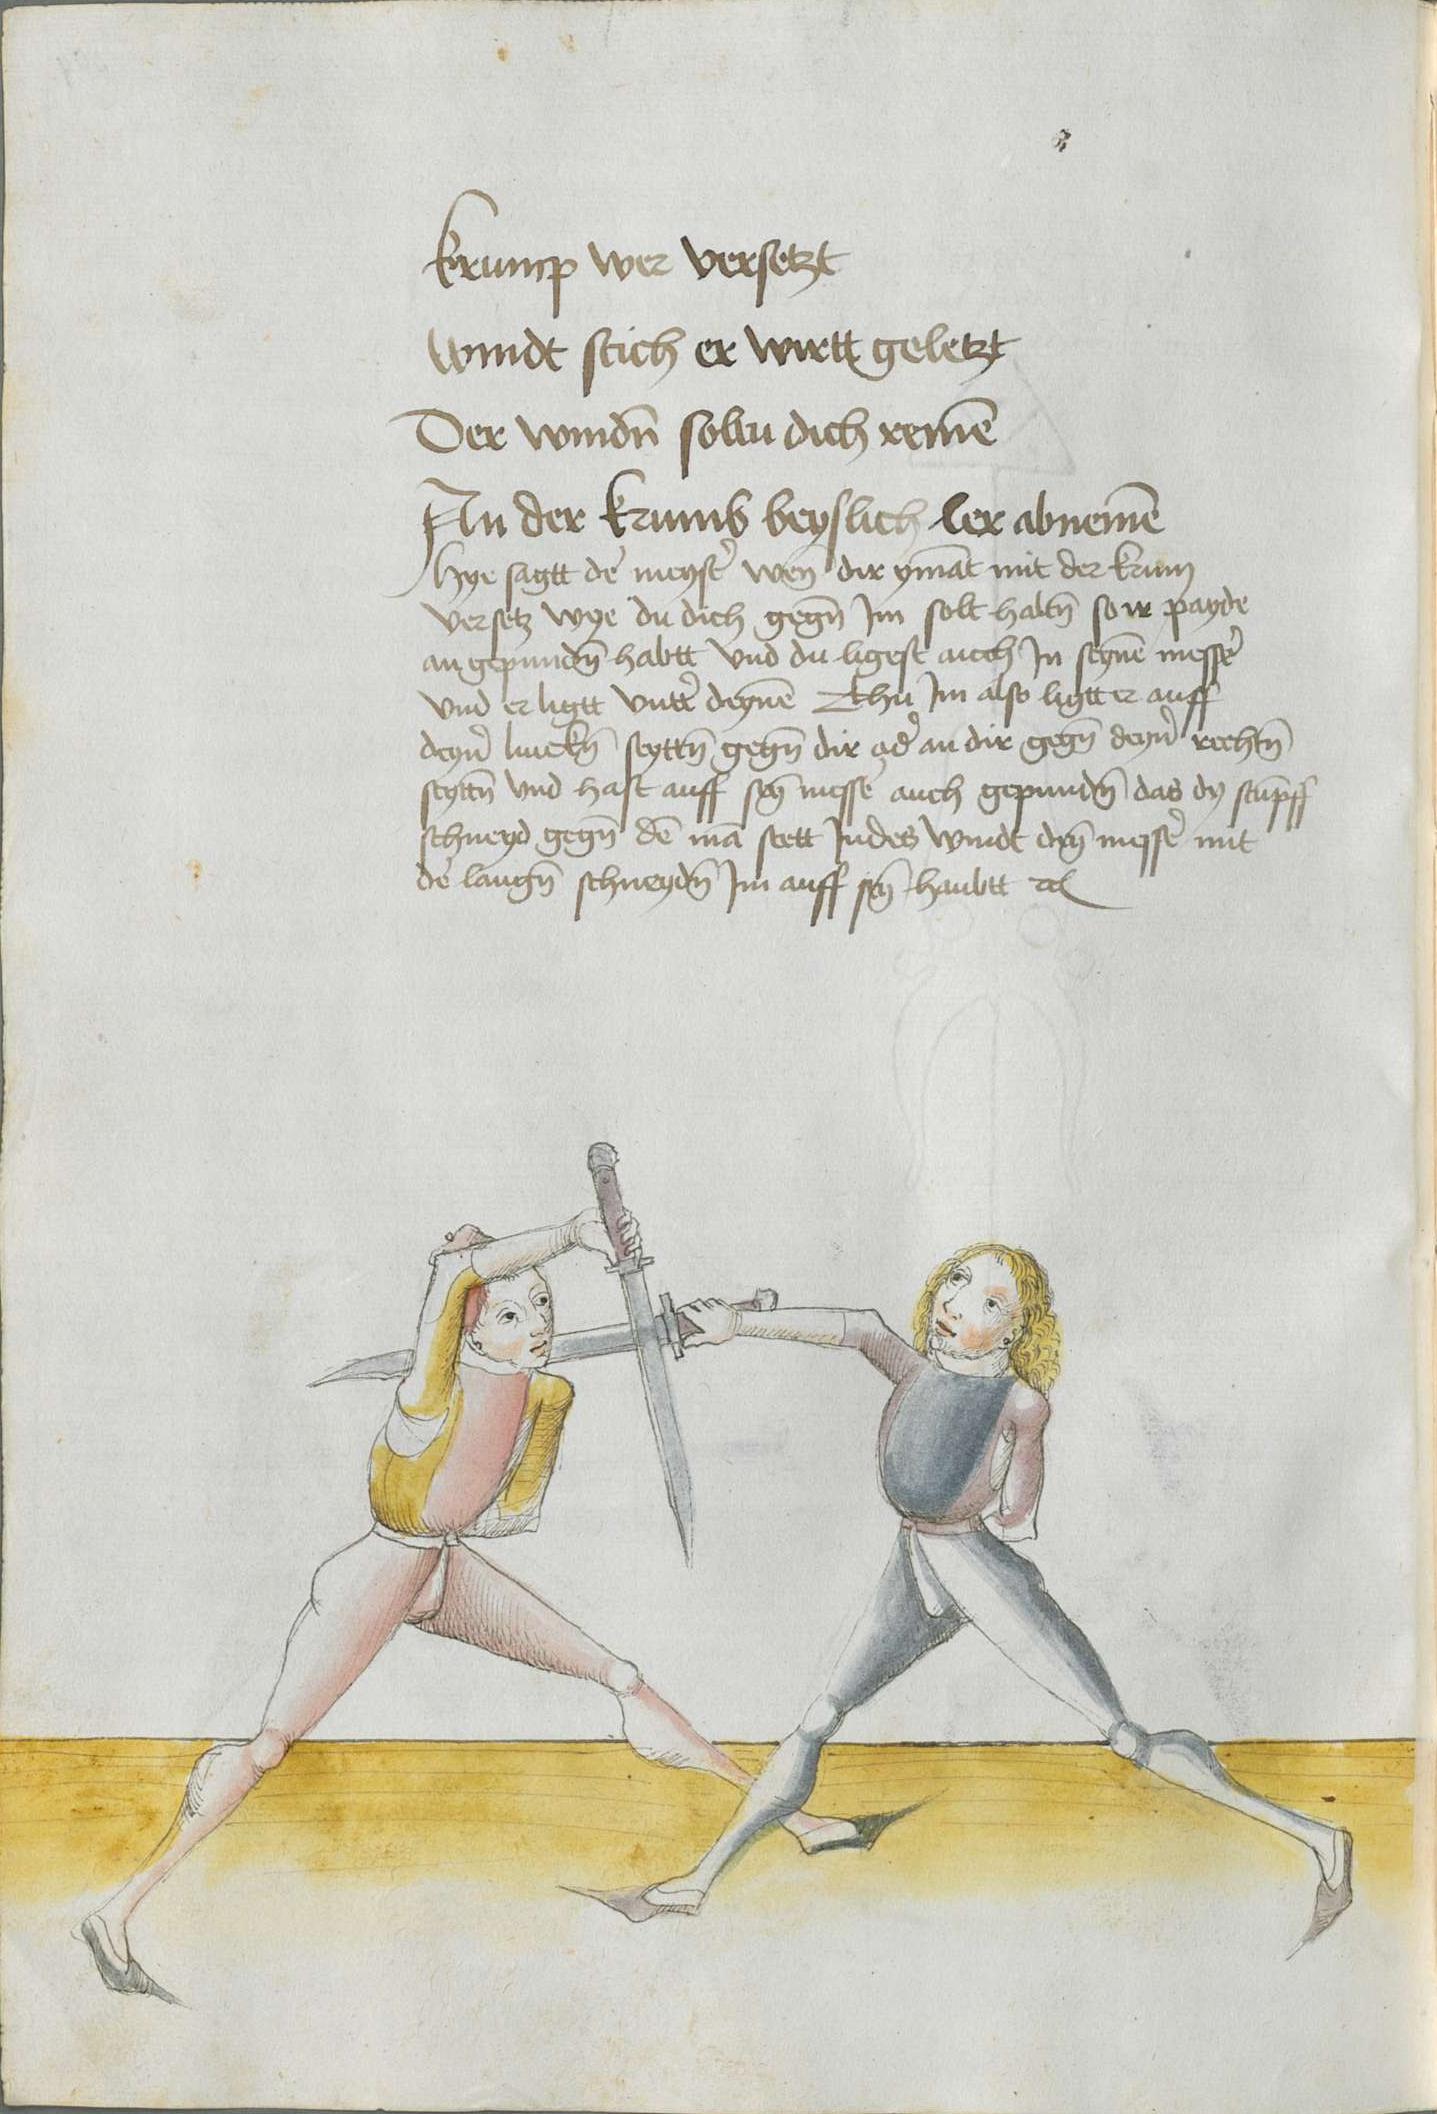 krump wer versetzt
windt stich er wirtt geletzt
Der windn̄ soltu dich remē
An der krumb beyslich ler abnemē
Hye sagtt de᷑ meyste᷑ wen̄ dir ymāt mit der krum
versetz wye du dich gegn̄ Im solt haltn̄ so ir payde
an gepundn̄ habtt vnd du ligest auch In seynē messe᷑
vnd er ligtt vntt᷑ deynē Thu Im also ligtt er auff
deyn᷑ linckn̄ seyttn̄ gegn̄ dir od᷑ an dir gegn̄ deyn᷑ rechtn̄
seyttn̄ vnd hast auff sey̅ messe᷑ auch gepundn̄ das dy stūpff
schneyd gegn̄ dē mā stett Indes windt dey̅ messe᷑ mit
de᷑ langn̄ schneydn̄ Im auff sey̅ haubtt